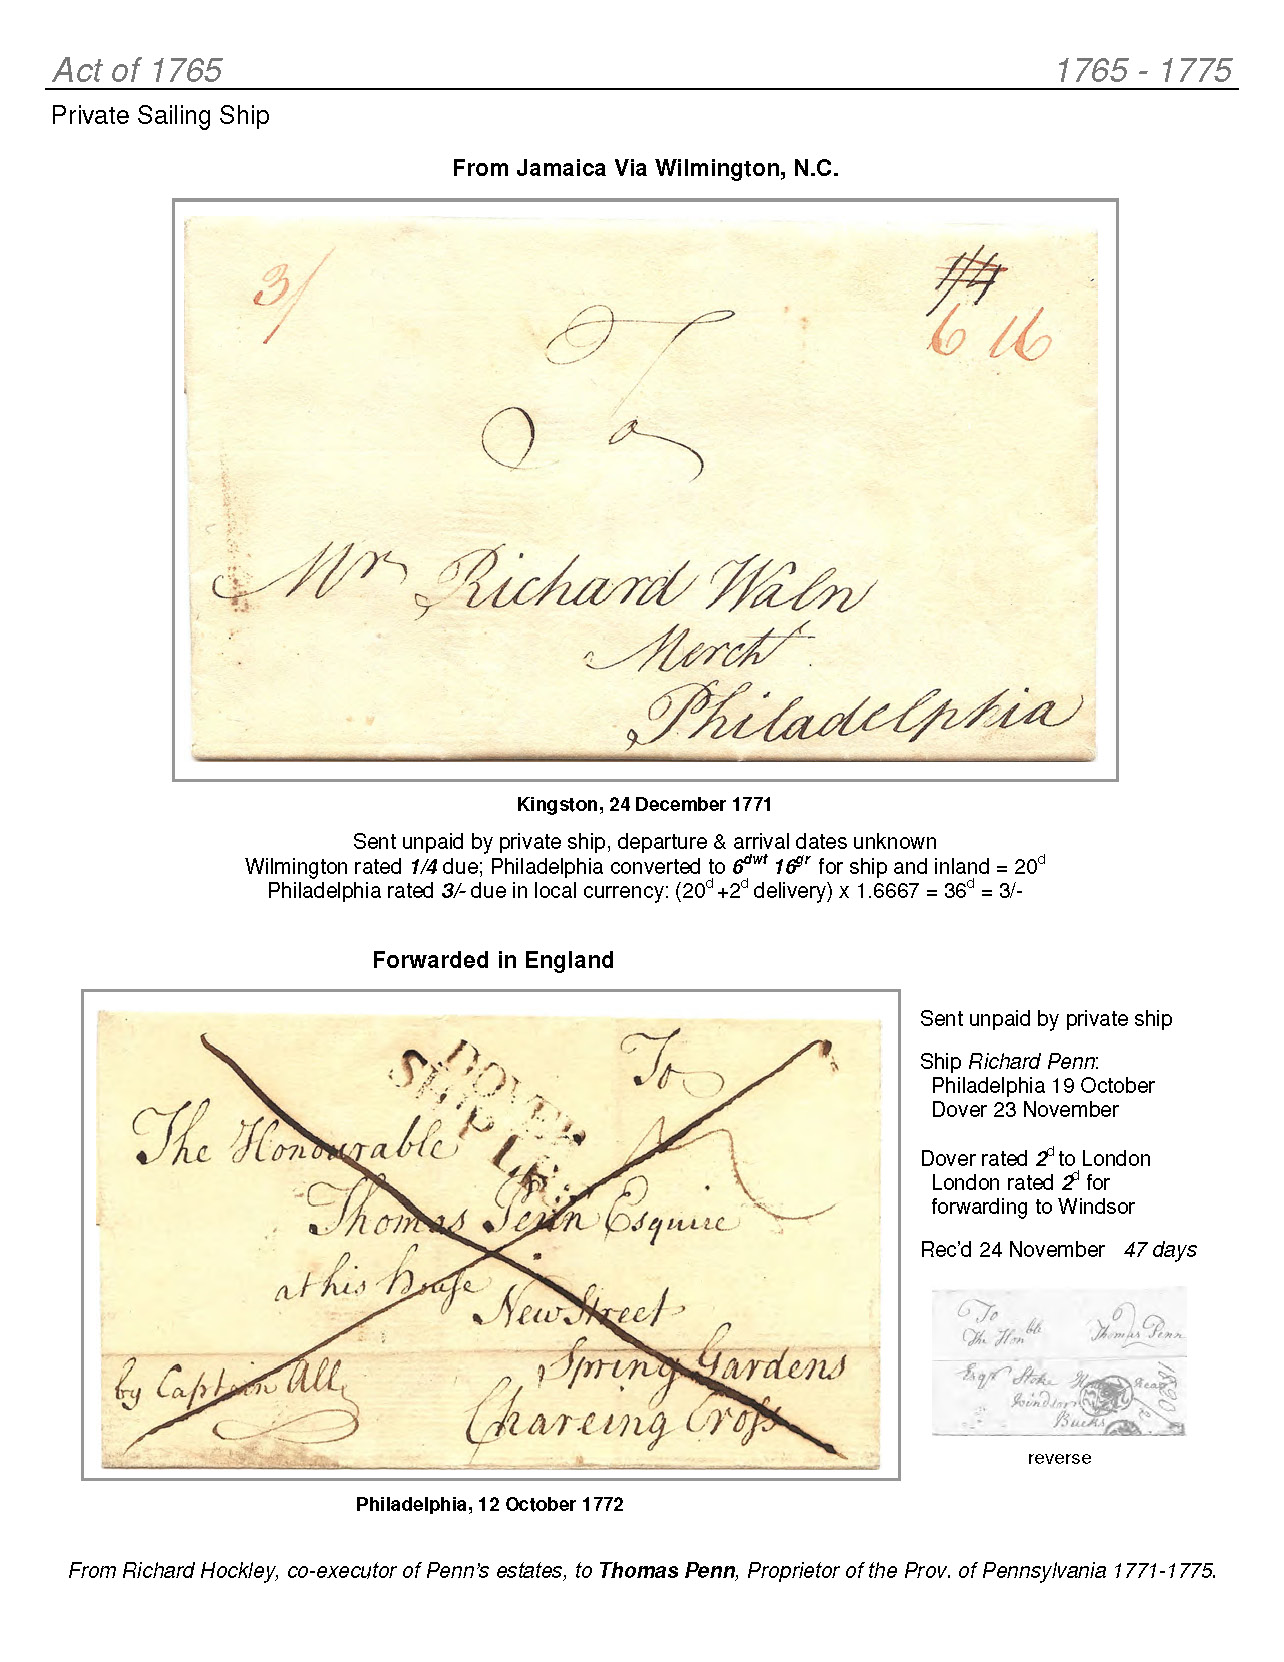 Act of 1765 1765 - 1775
Private Sailing Ship
From Jamaica Via Wilmington, N.C.
3/ 1/4
6 16
To
Mr Richard Waln
Mercht
Philadelphia
Kingston, 24 December 1771
Sent unpaid by private ship, departure & arrival dates unknown
Wilmington rated 1/4 due; Philadelphia converted to 6dwt 16gr for ship and inland = 20d
Philadelphia rated 3/- due in local currency: (20d +2d delivery) x 1.6667 = 36d = 3/-
Forwarded in England
DOVER
SHIP LRE
To
The Honourable
Thomas Penn Esquire
at his house
New Street
Spring Gardens
Chareing Cross
by Captain All
Philadelphia, 12 October 1772
Sent unpaid by private ship
Ship Richard Penn:
Philadelphia 19 October
Dover 23 November
Dover rated 2d to London
London rated 2d for
forwarding to Windsor
Rec'd 24 November 47 days
To
The Honble Thomas Penn
Esqr Stoke near
Windsor
Bucks
reverse
From Richard Hockley, co-executor of Penn's estates, to Thomas Penn, Proprietor of the Prov. of Pennsylvania 1771-1775.